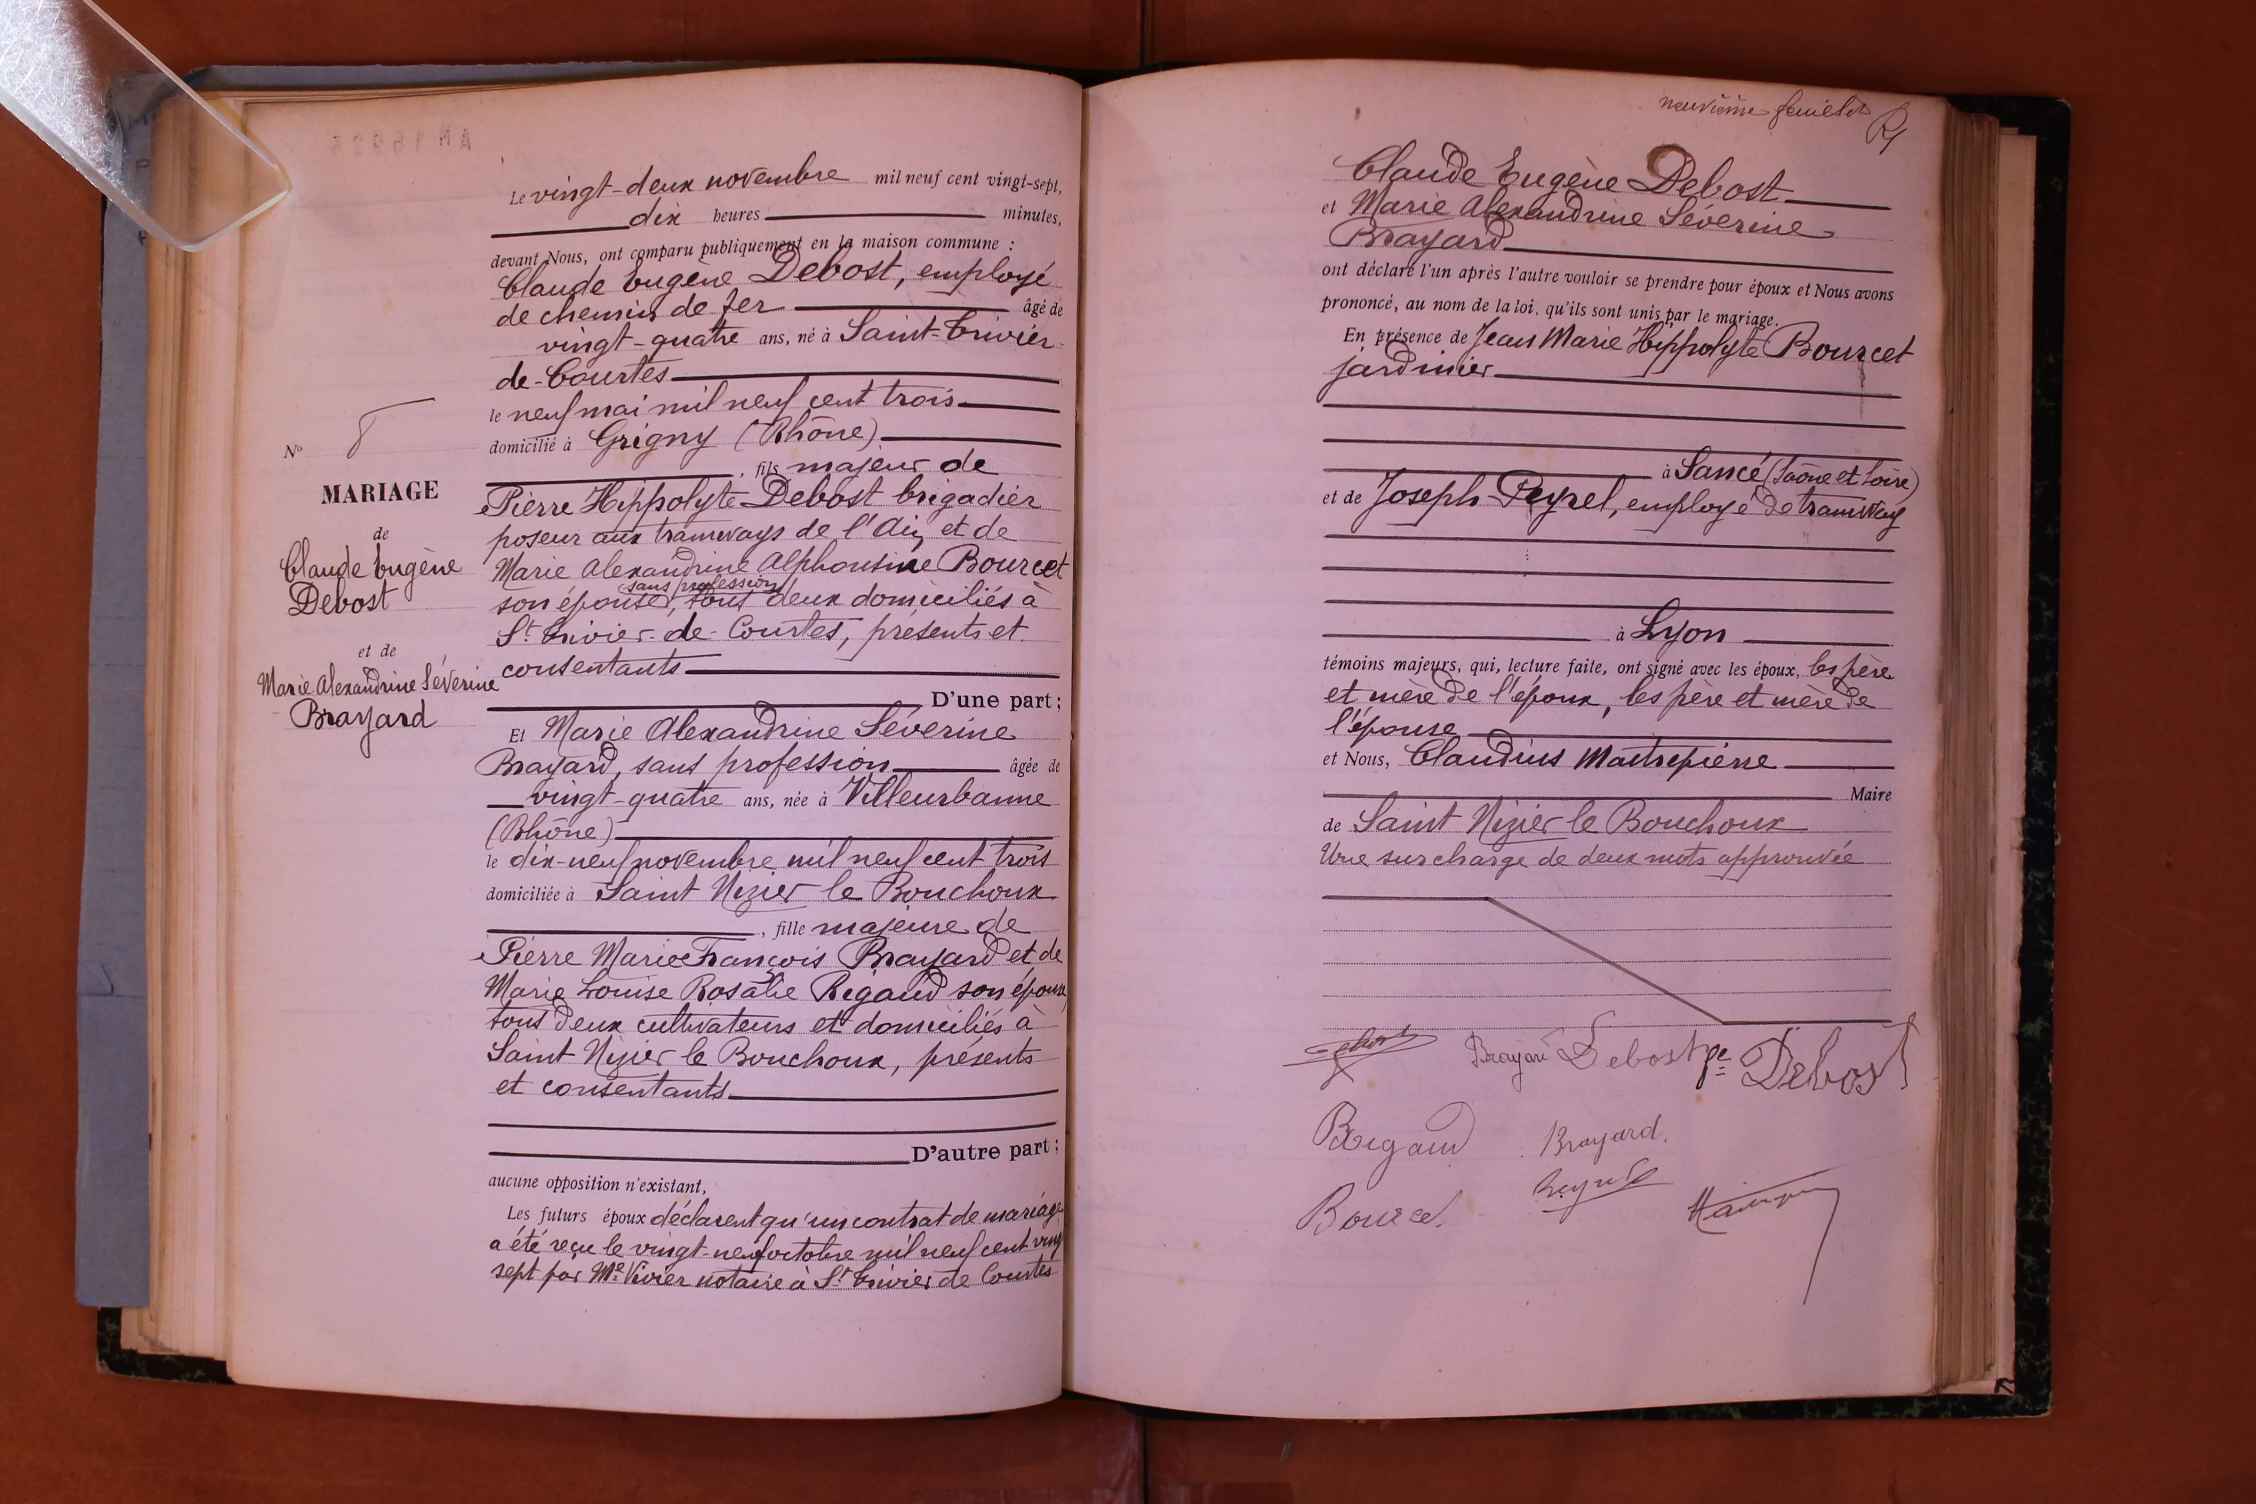 Le vingt-deux novembre mil neuf cent vingt-sept,
dix heures minutes,
devant Nous, ont comparu publiquement en la maison commune :
Claude Eugène Debost, employé
de chemin de fer âgé de
vingt-quatre ans, né à Saint-Trivier-
de-Courtes
le neuf mai mil neuf cent trois
domicilié à Grigny (Rhône)
, fils majeur de
Pierre Hippolyte Debost brigadier
poseur aux tramways de l'Ain et de
Marie Alexandrine Alphonsine Bourcet
sans profession
son épouse, tous deux domiciliés à
St Trivier-de-Courtes, présents et
consentants
D'une part ;
Et Marie Alexandrine Séverine
Brayard, sans profession âgée de
vingt-quatre ans, née à Villeurbanne
(Rhône)
le dix-neuf novembre mil neuf cent trois
domiciliée à Saint Nizier le Bouchoux
, fille majeure de
Pierre Marie François Brayard et de
Marie Louise Rosalie Rigaud son épouse,
tous deux cultivateurs et domiciliés à
Saint Nizier le Bouchoux, présents
et consentants
D'autre part ;
aucune opposition n'existant,
Les futurs époux déclarent qu'un contrat de mariage
a été reçu le vingt-neuf octobre mil neuf cent vingt
sept par Me Vivier notaire à St Trivier de Courtes
No 8
MARIAGE
de
Claude Eugène
Debost
et de
Marie Alexandrine Séverine
Brayard
neuvième feuillet
Claude Eugène Debost
et Marie Alexandrine Séverine
Brayard
ont déclaré l'un après l'autre vouloir se prendre pour époux et Nous avons
prononcé, au nom de la loi, qu'ils sont unis par le mariage.
En présence de Jean Marie Hippolyte Bourcet
jardinier
à Sancé (Saône et Loire)
et de Joseph Peyrel, employé de tramway
à Lyon
témoins majeurs, qui, lecture faite, ont signé avec les époux, les père
et mère de l'époux, les père et mère de
l'épouse
et Nous, Claudius Maitrepierre
Maire
de Saint Nizier le Bouchoux
Une surcharge de deux mots approuvée
Debost Brayard Debost Debost
Rigaud Brayard.
Bourcet